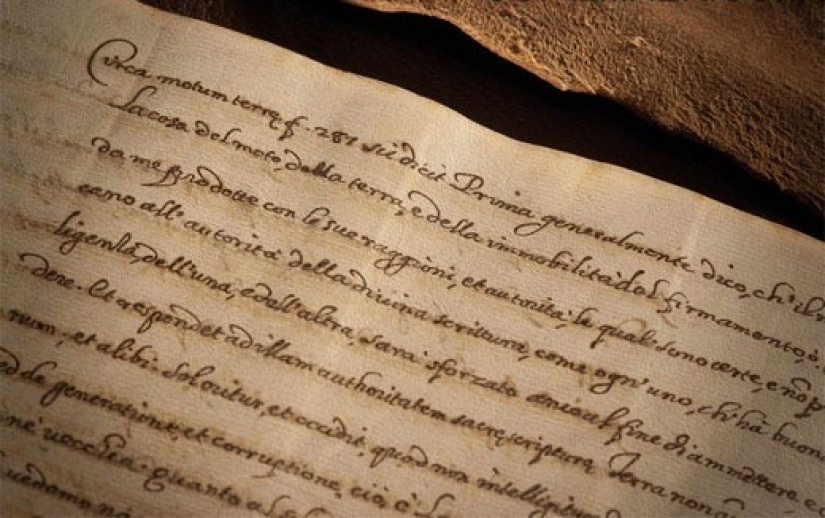 Circa motum terrę f. 287 sic dicit Prima generalmente dico, ch'il
la cosa del moto della terra, e della immobilità del firmamento, ò
da me prodotte con le sue raggioni, et autorità, le quali sono certe, e nõ p
cano all'autorità della divina scrittura, come ogn'uno, ch'hà buon
ligenza dell'una, e dell'altra, sarà sforzato anco al fine di ammettere e
dere. Et respondet ad illam authoritatem sacrę scripturę Terra non
num, et alibi. sol oritur, et occidit, quod non intelligitur
ed de generatione, et corruptione, cioè, la
nè vecchia. quanto al sole